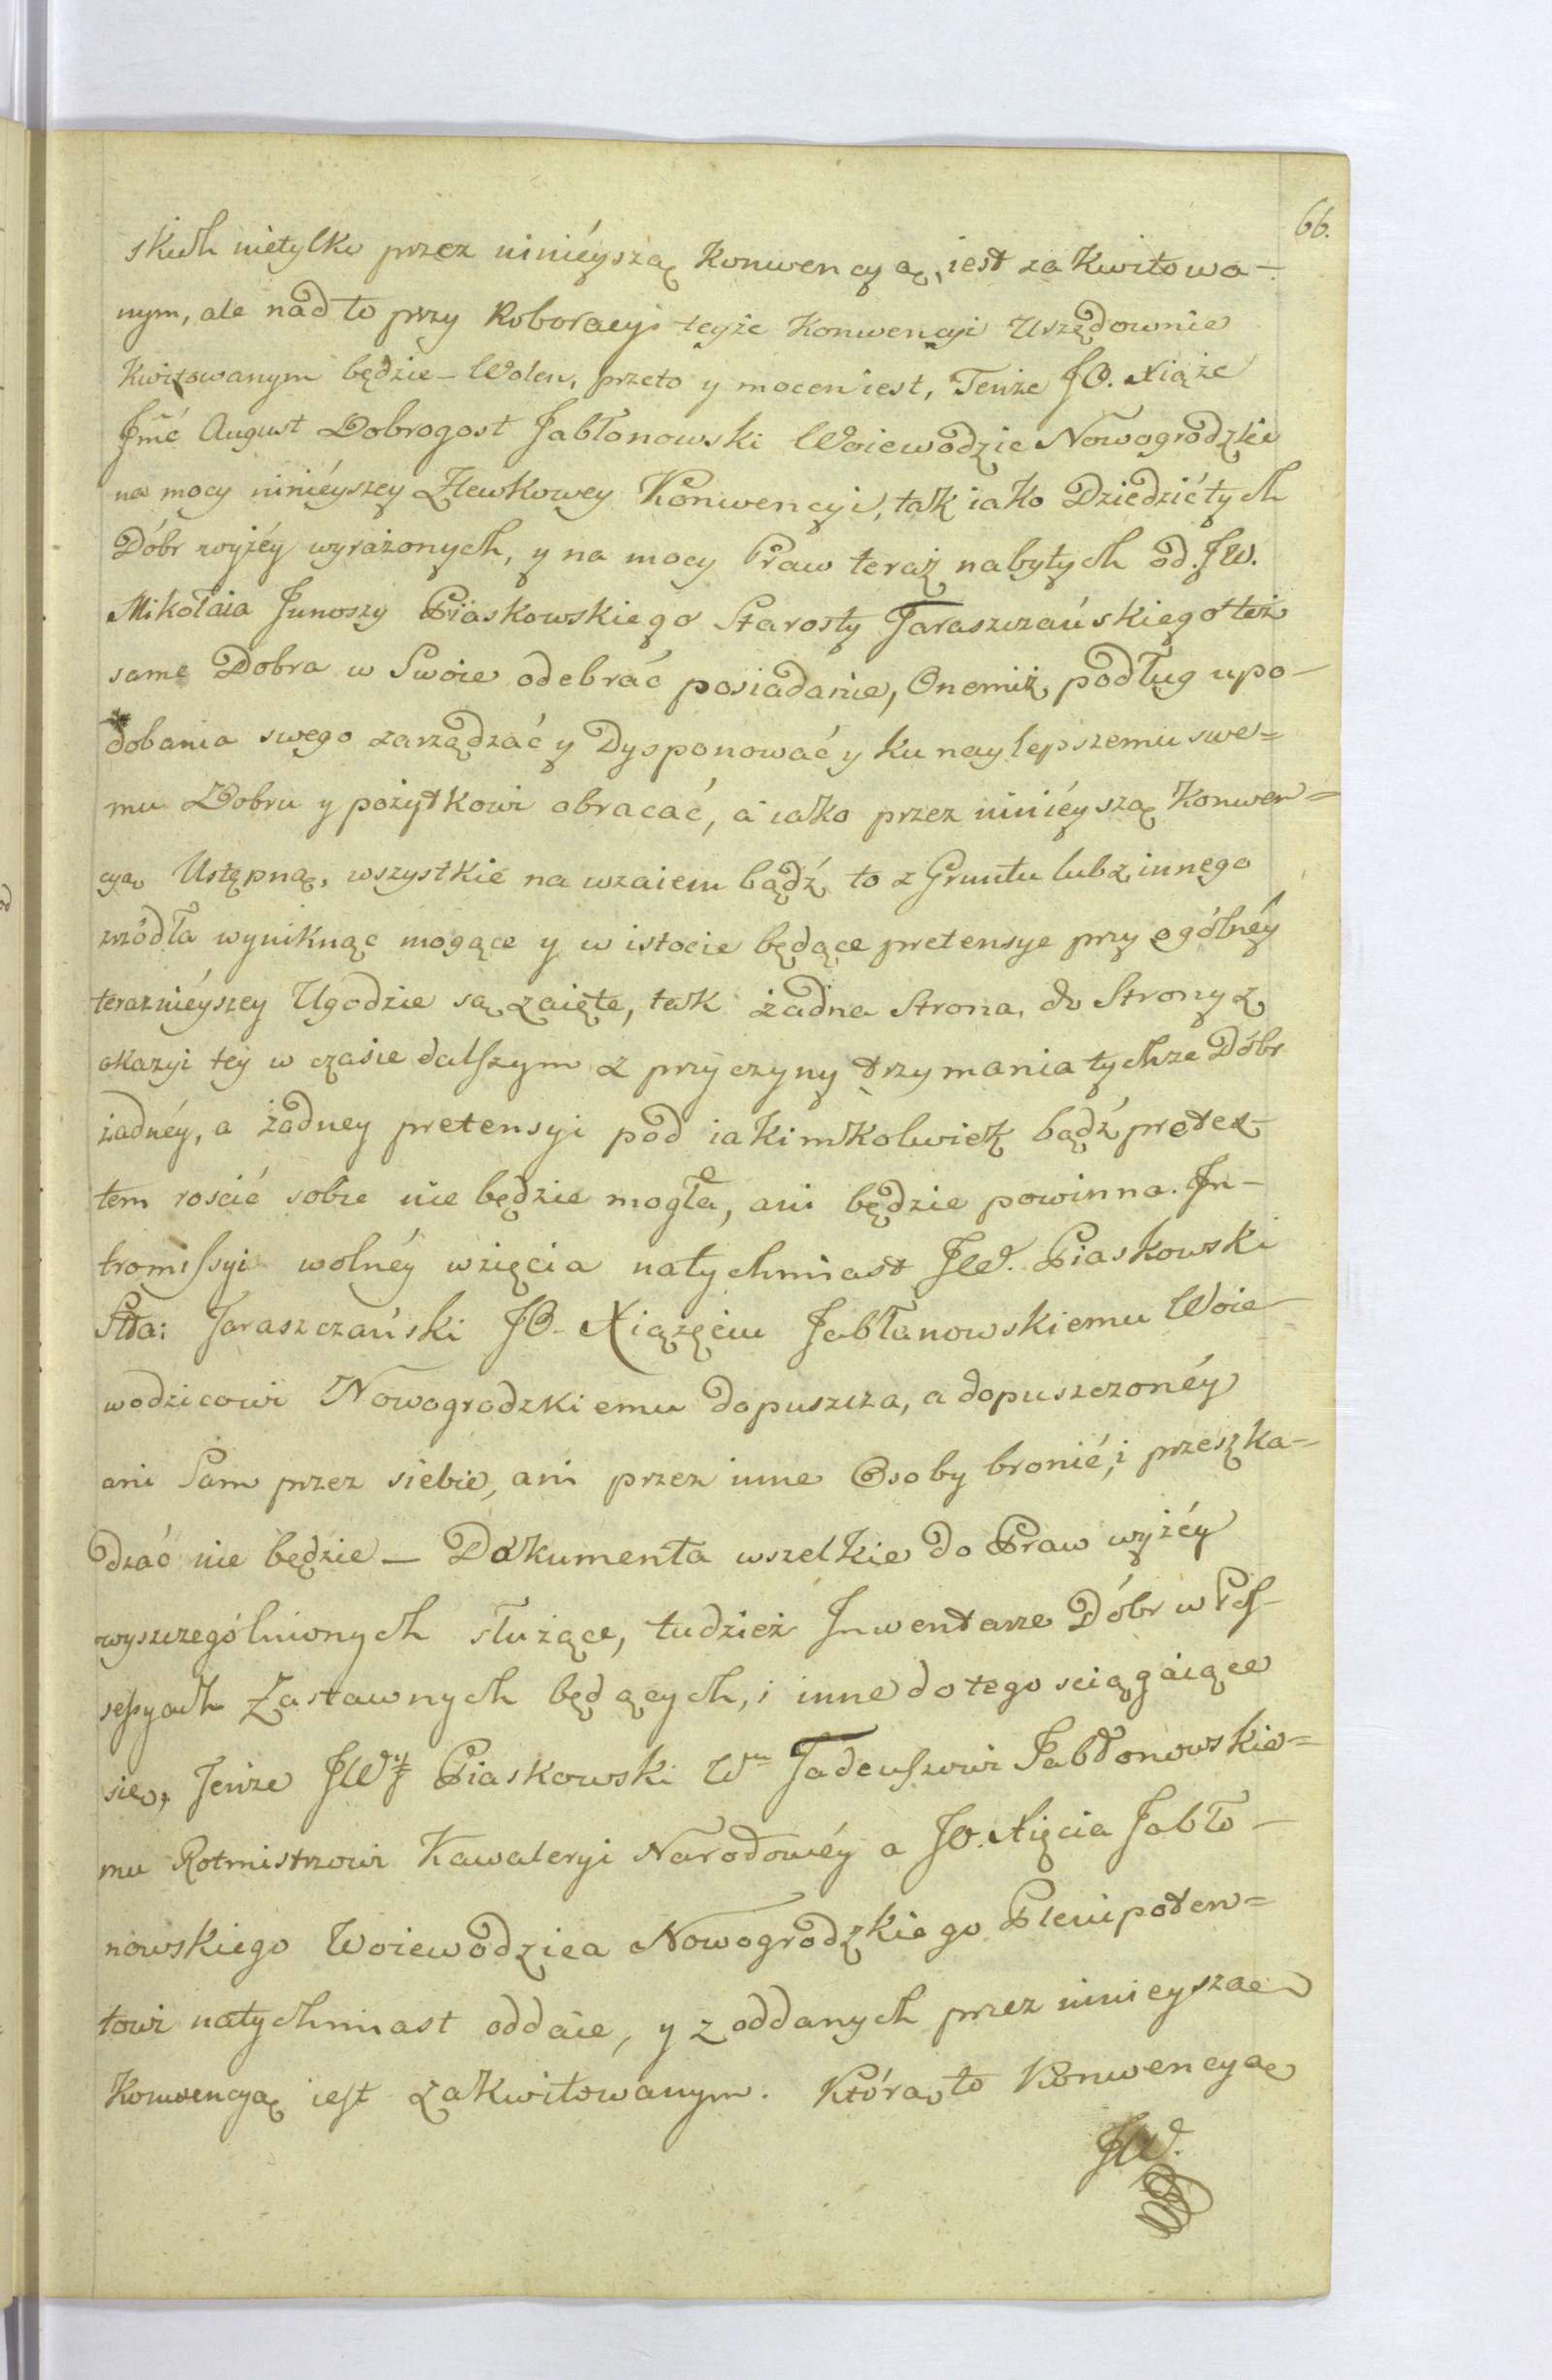 66.
skich nietylko przez ninièyszą Konwencyą, iest zakwitowa-
nym, ale nadto przy Roboracyi teyże Konwencyi Urzędownie
Kwitowanym będzie - Wolen, przeto y mocen iest, Tenże JO. Xiąże
Jmć August Dobrogost Jabłonowski Woiewodzic Nowogrodzki
na mocy niniéyszey Zlewkowey Konwencyi, tak iako Dziedzić tych
Dóbr wyżéy wyrażonych, y na mocy Praw teraz nabytych od JW.
Mikołaia Junoszy Piaskowskiego Starosty Taraszczańskiego też
same Dobra w Swoie odebrać posiadanie, Onemiż podług upo-
dobania swego zarządzać y Dysponować y ku naylepszemu swe=
mu Dobru y pożytkowi obracać, a iako przez niniéyszą Konwen=
cyą Ustępną, wszystkie na wzaiem bądź to z Gruntu lub z innego
zrzódła wyniknąc mogące y w istocie będące pretensye przy ogólnéy
teraznieyszey Ugodzie są zaięte, tak żadna Strona, do Strony z
okazyi téy w czasie dalszym z przyczyny trzymania tychże Dóbr
żadnéy, a żadney pretensyi pod iakimkolwiek bądź pretex-
tem roscić sobie nie będzie mogła, ani będzie powinna. In-
tromissyi wolnéy wzięcia natychmiast JW. Piaskowski
Stta: Taraszczański JO. Xiążęciu Jabłanowskiemu Woie-
wodzicowi Nowogrodzkiemu dopuszcza, a dopuszczonéy
ani Sam przez siebie, ani przez inne Osoby bronić, i przeszka-
dzać nie będzie - Dokumenta wszelkie do Praw wyżéy
wyszczególnionych służące, tudzież Inwentarze Dóbr w Pos-
sessyach Zastawnych będących, i inne do tego sciągaiące
się, Tenże JW Piaskowski Wu Tadeuszowi Jabłonowskie=
mu Rotmistrzowi Kawaleryi Narodowéy a JO. Xięcia Jabło-
nowskiego Woiewodzica Nowogrodzkiego Plenipoten=
towi natychmiast oddaie, y z oddanych przez ninieyszą
Konwencyą iest zakwitowanym. Którą to Konwencyą
JW.